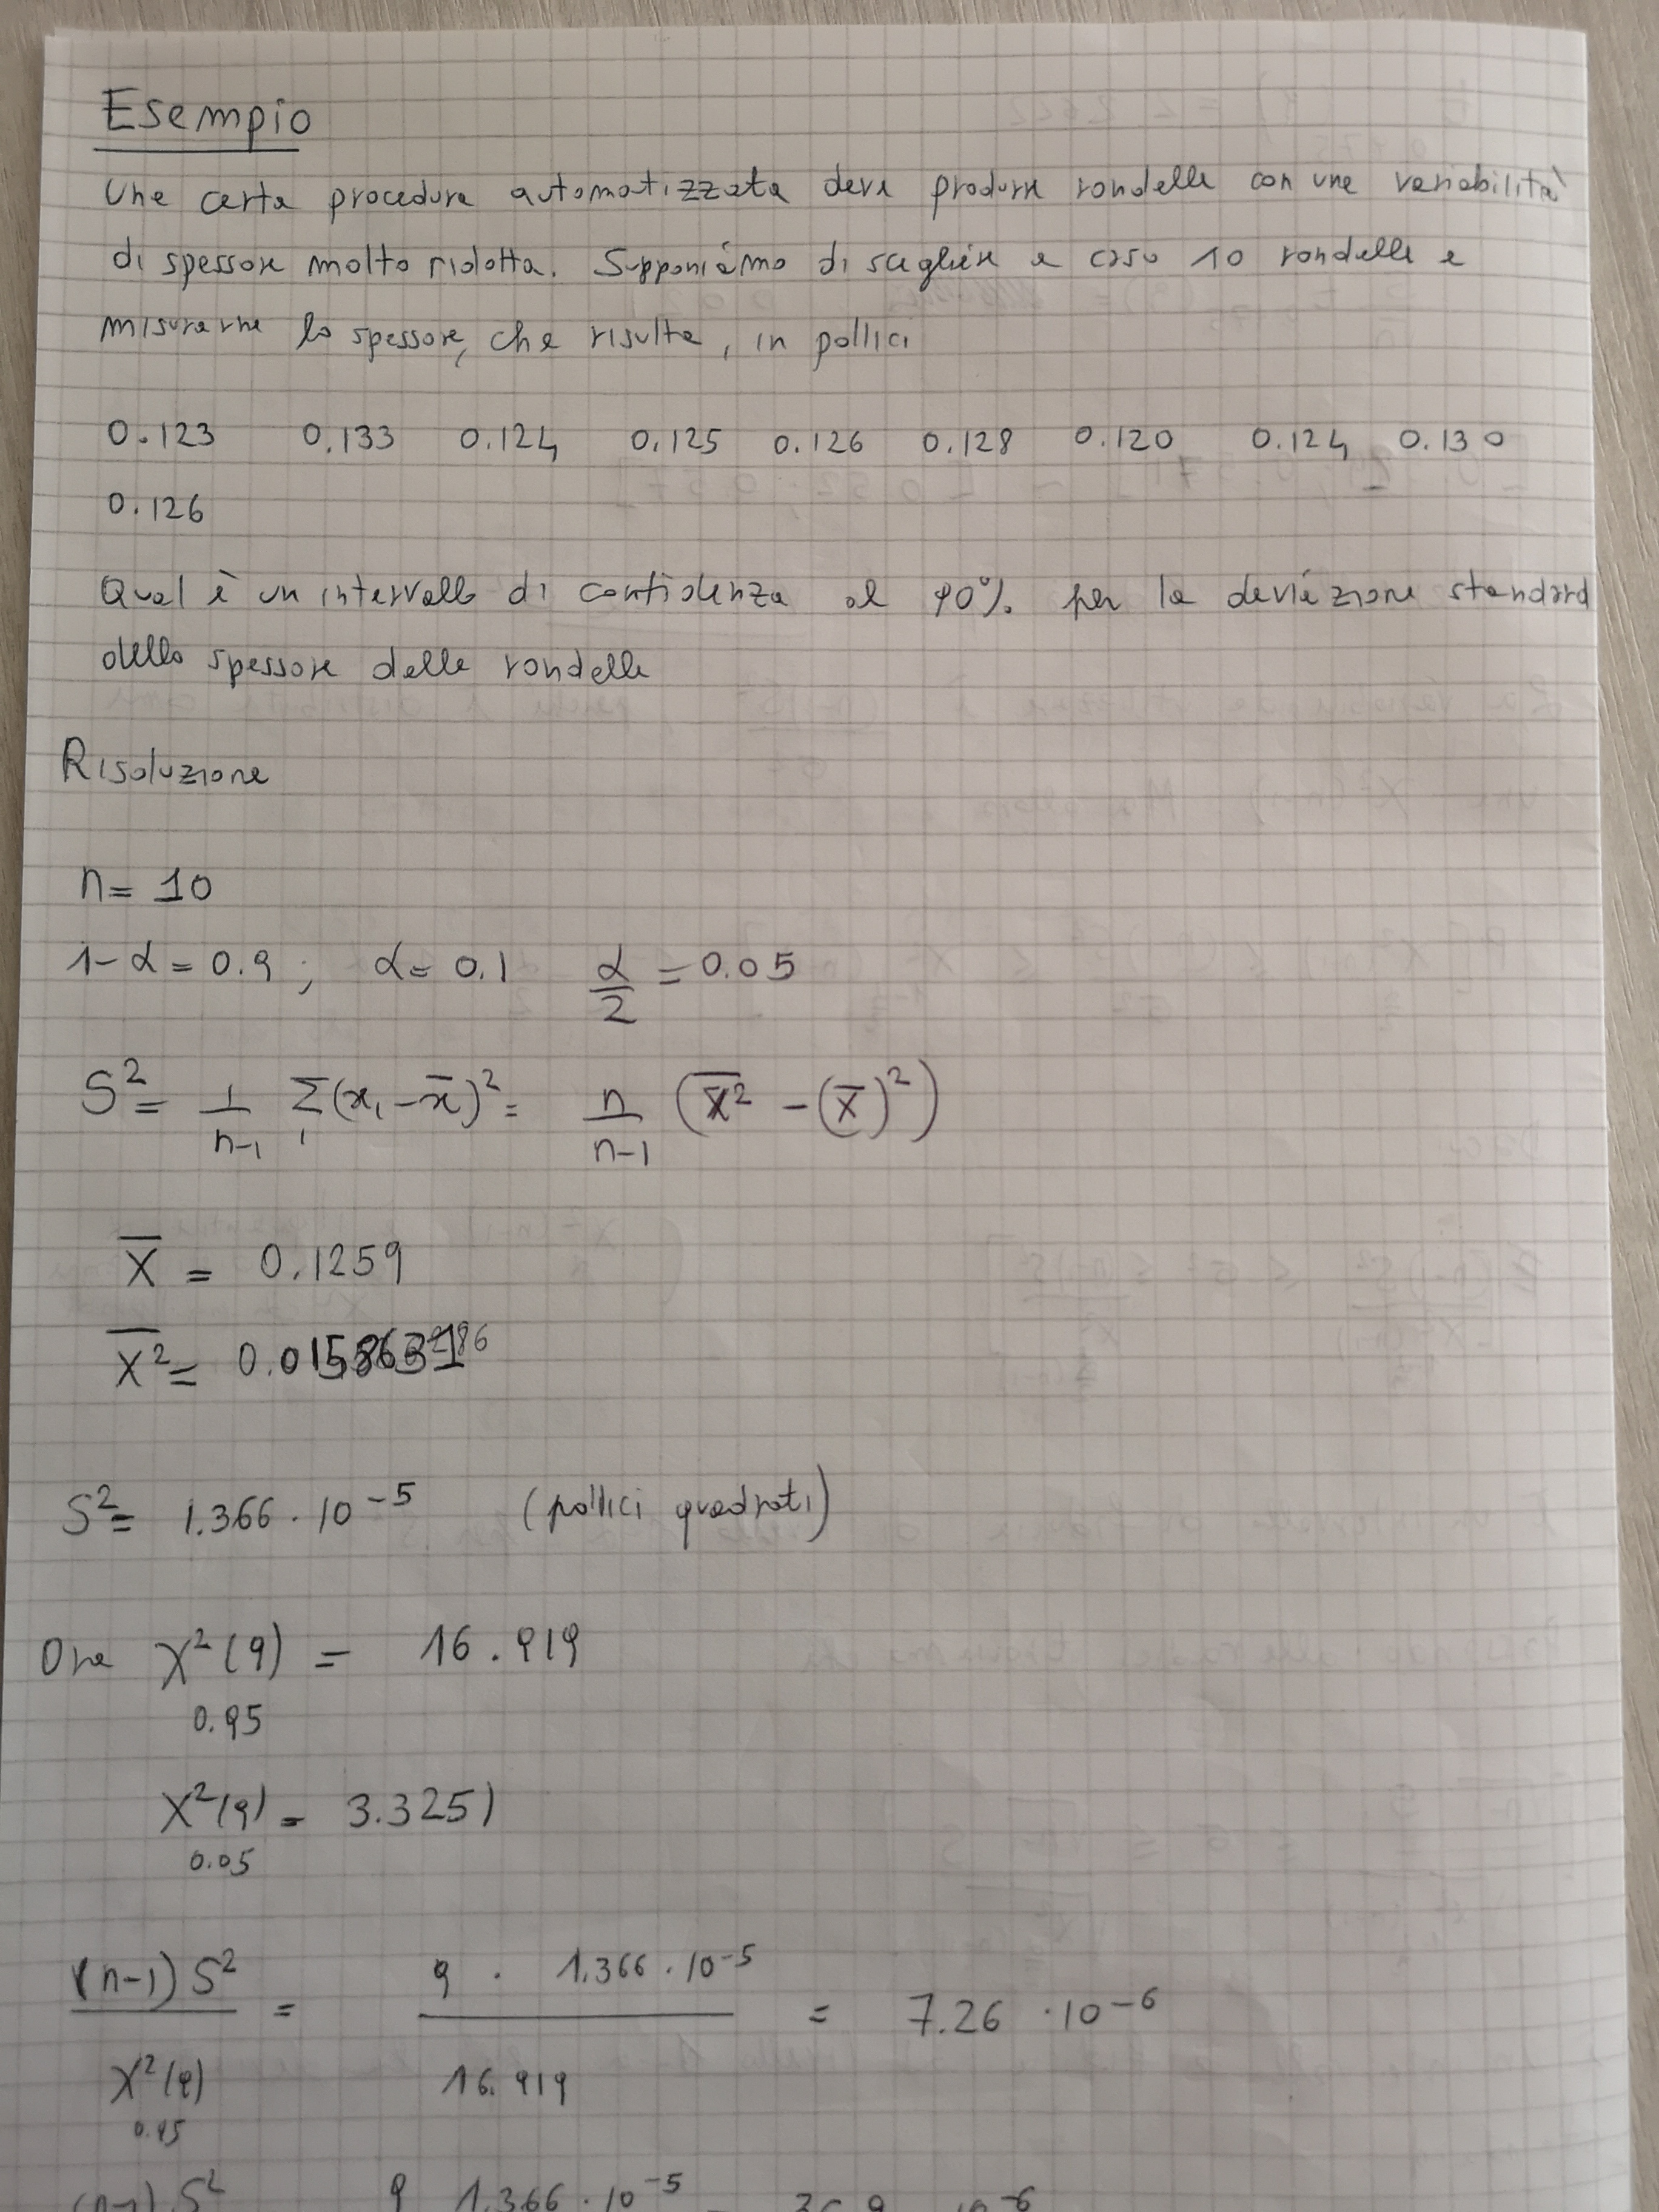 Esempio
Una certa procedura automatizzata deve produrre rondelle con una variabilità
di spessore molto ridotta. Supponiamo di scegliere a caso 10 rondelle e
misurarne lo spessore, che risulta, in pollici
0.123 0.133 0.124 0.125 0.126 0.128 0.120 0.124 0.130
0.126
Qual è un intervallo di confidenza al 90% per la deviazione standard
dello spessore delle rondelle
Risoluzione
n = 10
1-α = 0.9 ; α = 0.1 α/2 = 0.05
S² = 1/(n-1) Σ(xᵢ - x̄)² = n/(n-1) (X̄² - (X̄)²)
X̄ = 0.1259
X̄² =
S² = 1.366 · 10⁻⁵ (pollici quadrati)
Ora χ²(9) = 16.919
0.95
χ²(9) = 3.3251
0.05
(n-1) S² 9 · 1.366 · 10⁻⁵
= = 7.26 · 10⁻⁶
χ²(9) 16.919
0.95
(n-1) S² 9 1.366 · 10⁻⁵ = 36.9 10⁻⁶